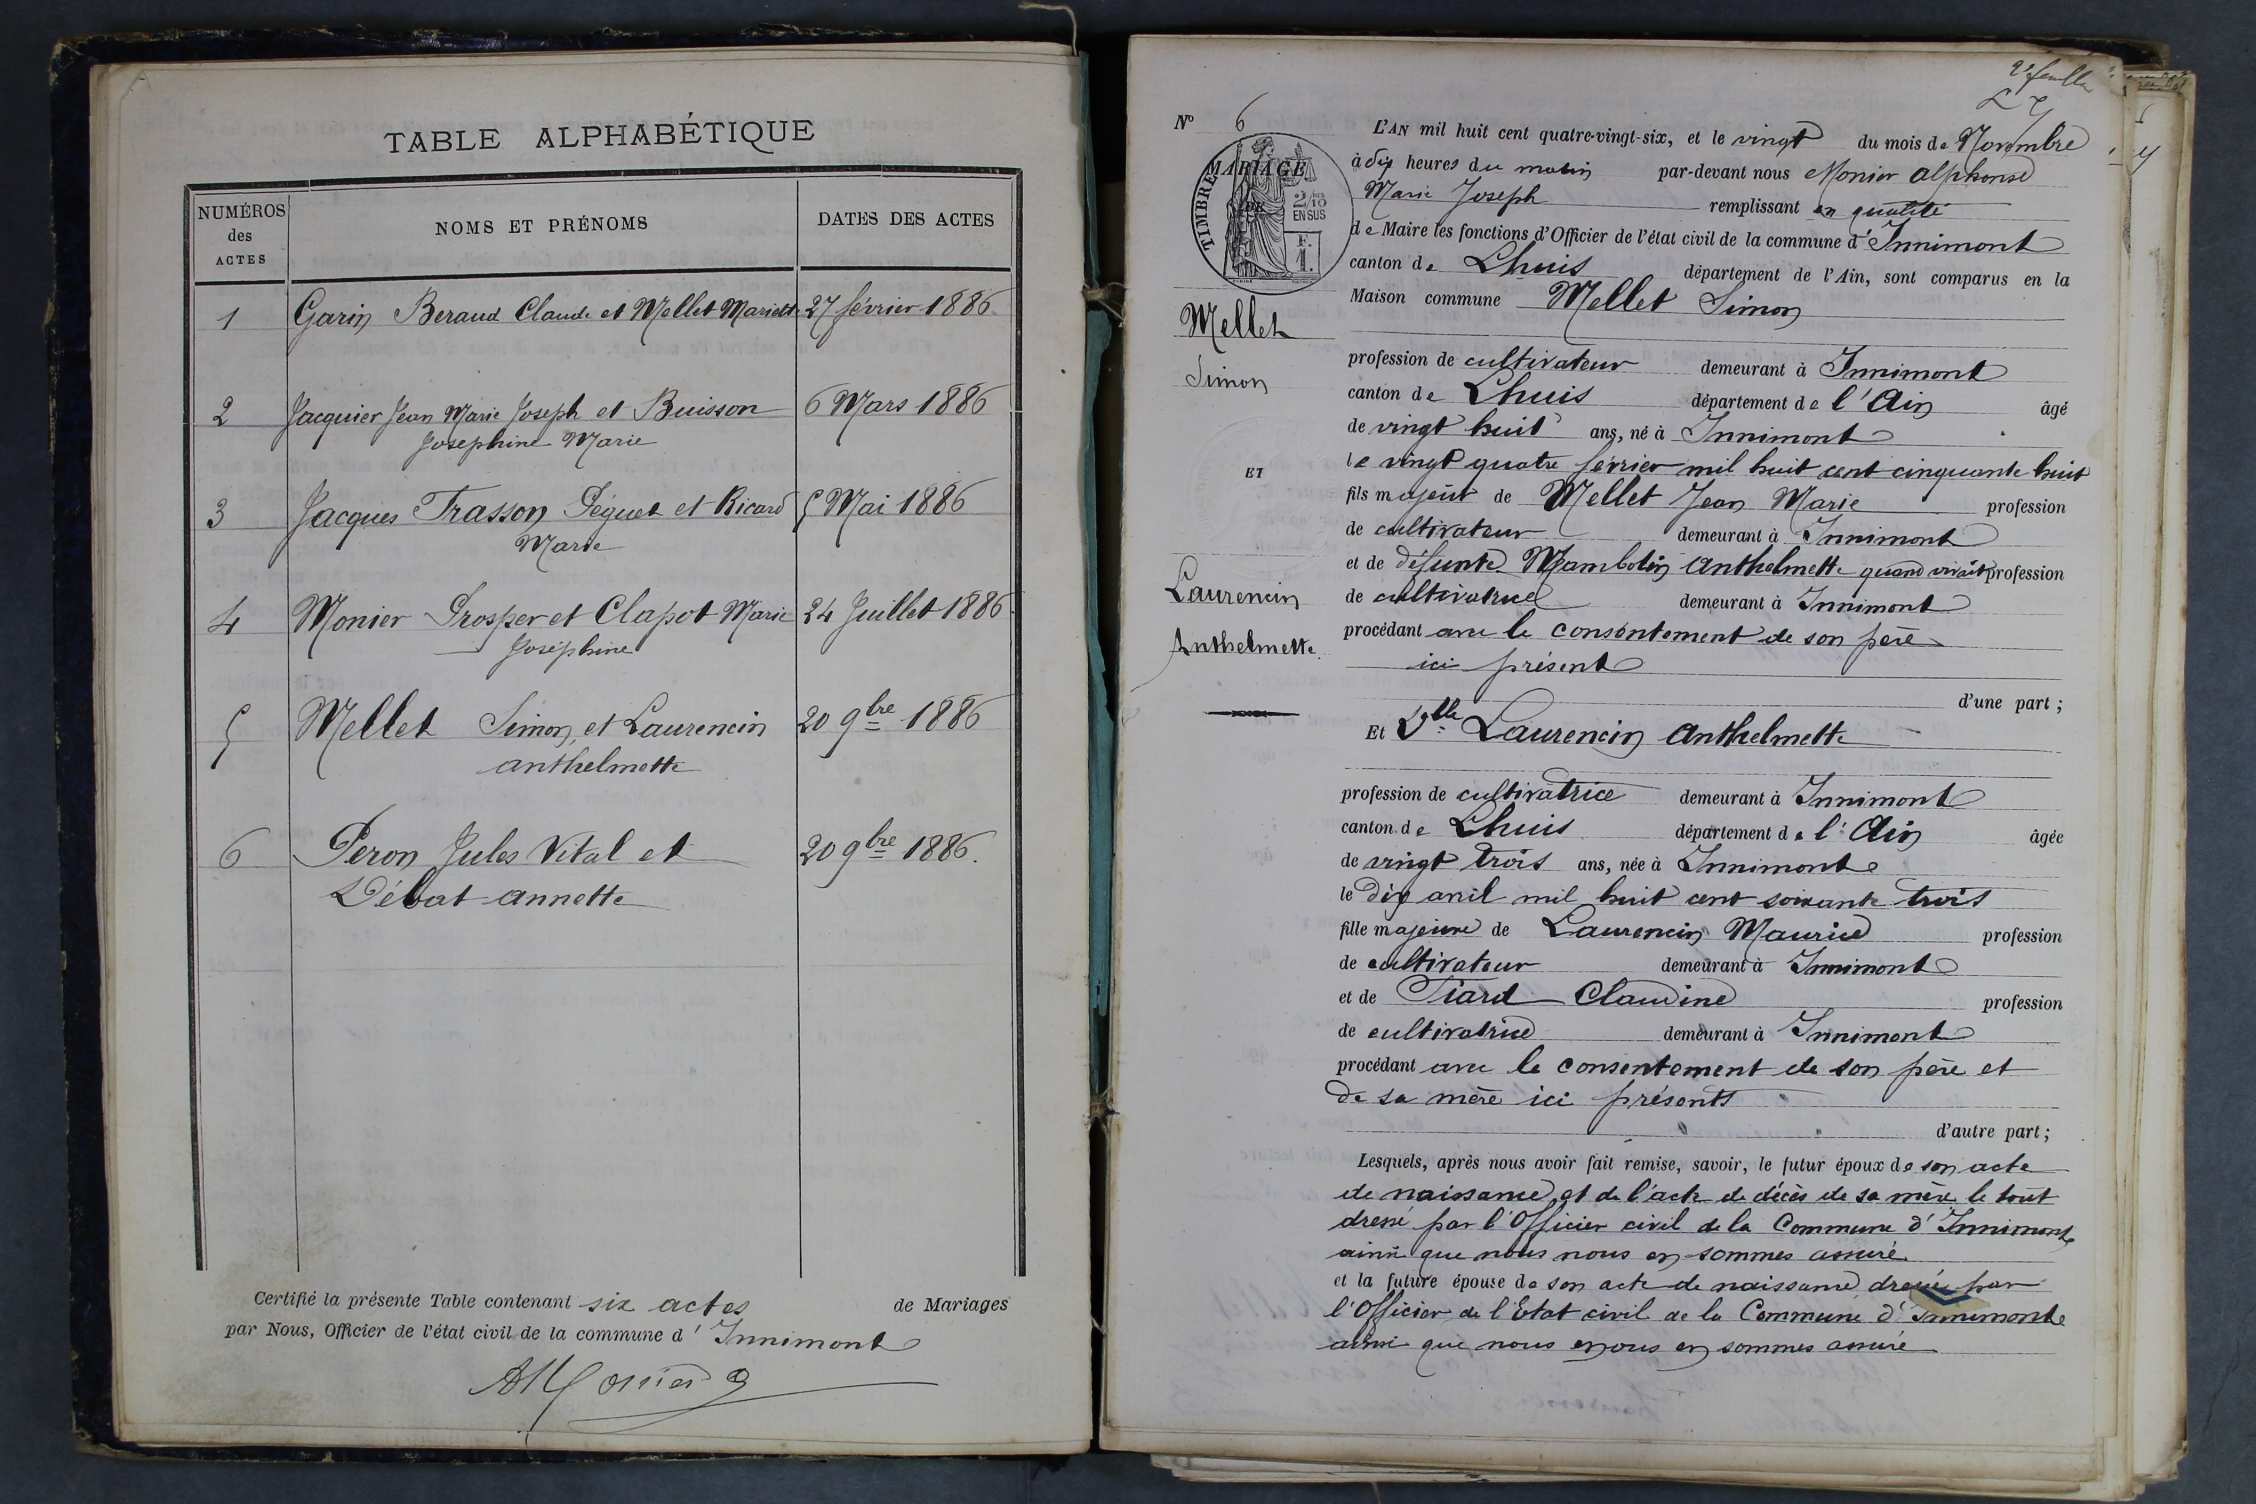 TABLE ALPHABÉTIQUE
NUMÉROS
des
ACTES
NOMS ET PRÉNOMS
DATES DES ACTES
1 Garin Beraud Claude et Mellet Mariette 27 février 1886
2 Jacquier Jean Marie Joseph et Buisson 6 Mars 1886
Josephine Marie
3 Jacques Trasson Péguet et Ricard 5 Mai 1886
Marie
4 Monier Prosper et Clapot Marie 24 Juillet 1886
Joséphine
5 Mellet Simon et Laurencin 20 9bre 1886
anthelmette
6 Peron Jules Vital et 20 9bre 1886.
Débat annette
Certifié la présente Table contenant six actes de Mariages
par Nous, Officier de l'état civil de la commune d' Innimont
AMonier
2e feuille
No 6
MARIAGE
DE
TIMBRE
2/10
EN SUS
F.
1.
Mellet
Simon
ET
Laurencin
Anthelmette
L'AN mil huit cent quatre-vingt-six, et le vingt du mois de Novembre
à dix heures du matin par-devant nous Monier alphonse
Marie Joseph remplissant en qualité
de Maire les fonctions d'Officier de l'état civil de la commune d' Innimont
canton de Lhuis département de l'Ain, sont comparus en la
Maison commune Mellet Simon
profession de cultivateur demeurant à Innimont
canton de Lhuis département de l'Ain âgé
de vingt huit ans, né à Innimont
le vingt quatre février mil huit cent cinquante huit
fils majeur de Mellet Jean Marie profession
de cultivateur demeurant à Innimont
et de défunte Mambotin Anthelmette quand vivait profession
de cultivatrice demeurant à Innimont
procédant avec le consentement de son père
ici présent
d'une part ;
Et Dlle Laurencin Anthelmette
profession de cultivatrice demeurant à Innimont
canton de Lhuis département de l'Ain âgée
de vingt trois ans, née à Innimont
le dix avril mil huit cent soixante trois
fille majeure de Laurencin Maurice profession
de cultivateur demeurant à Innimont
et de Siard Claudine profession
de cultivatrice demeurant à Innimont
procédant avec le consentement de son père et
de sa mère ici présents
d'autre part ;
Lesquels, après nous avoir fait remise, savoir, le futur époux de son acte
de naissance et de l'acte de décès de sa mère le tout
dressé par l'Officier civil de la Commune d'Innimont
ainsi que nous nous en sommes assuré.
et la future épouse de son acte de naissance dressé par
l'Officier de l'Etat civil de la Commune d'Innimont
ainsi que nous en sommes assuré